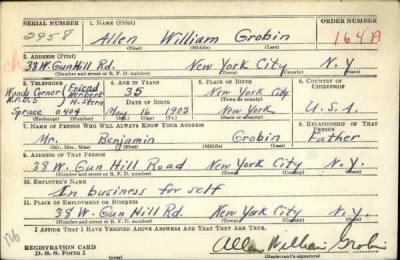 SERIAL NUMBER 1. NAME (Print) ORDER NUMBER
2958 Allen William Grobin 164A
(First) (Middle) (Last)
2. ADDRESS (Print)
38 W. Gun Hill Rd. New York City N.Y.
(Number and street or R. F. D. number) (Town) (County) (State)
3. TELEPHONE 4. AGE IN YEARS 5. PLACE OF BIRTH 6. COUNTRY OF CITIZENSHIP
Woods Corner (Friend 35 New York City
R.F.D. 5 Herbert DATE OF BIRTH (Town or county)
H. Stern U.S.A.
Spruce 0404 May 16 1905 New York
(Exchange) (Number) (Mo.) (Day) (Yr.) (State or country)
7. NAME OF PERSON WHO WILL ALWAYS KNOW YOUR ADDRESS 8. RELATIONSHIP OF THAT PERSON
Mr. Benjamin Grobin Father
(Mr., Mrs., Miss) (First) (Middle) (Last)
9. ADDRESS OF THAT PERSON
38 W. Gun Hill Road New York City N.Y.
(Number and street or R. F. D. number) (Town) (County) (State)
10. EMPLOYER'S NAME
In business for self
11. PLACE OF EMPLOYMENT OR BUSINESS
38 W. Gun Hill Rd. New York City N.Y.
(Number and street or R. F. D. number) (Town) (County) (State)
I AFFIRM THAT I HAVE VERIFIED ABOVE ANSWERS AND THAT THEY ARE TRUE.
REGISTRATION CARD
D. S. S. Form 1 Allen William Grobin
(Registrant's signature)